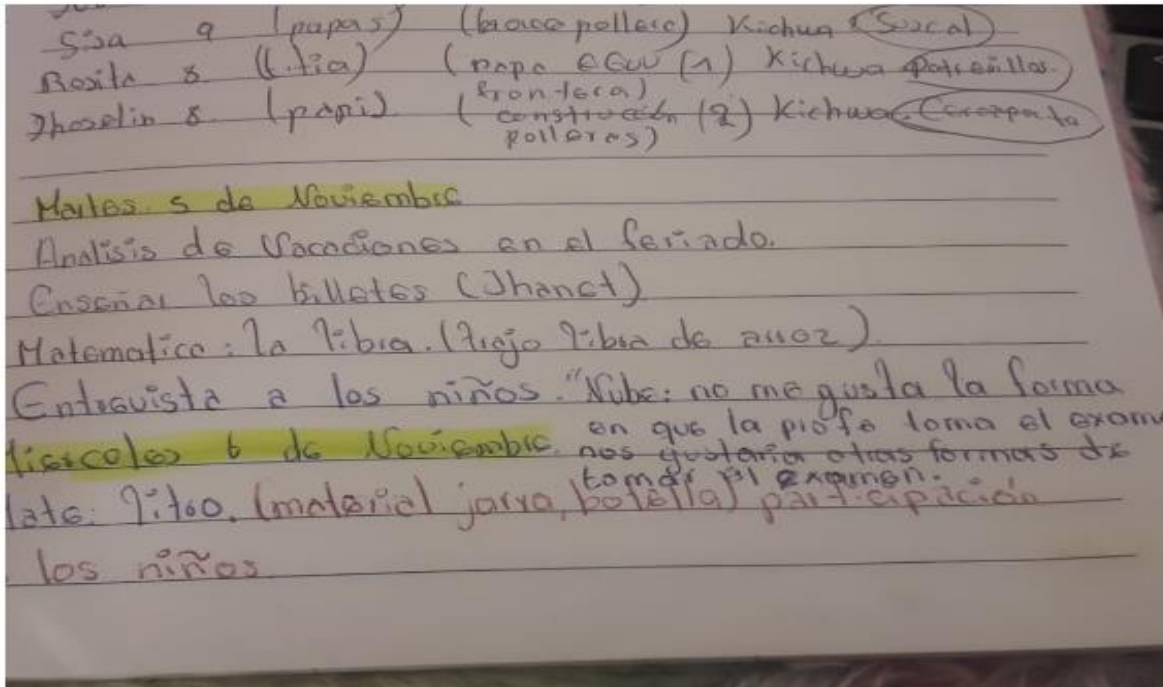 Sisa 9 (papas) (hace pollera) Kichwa (Suscal)
Rosita 8 (t. tia) (papa EEUU (1) Kichwa
frontera)
Jhoselin 8 (papi) ( construcción (2) Kichwa
polleras)
Martes 5 de Noviembre
Analisis de Vacaciones en el feriado.
Enseñar los billetes (Jhanet)
Matematica: la libra. (Trajo libra de arroz)
Entrevista a los niños. "Nube: no me gusta la forma
en que la profe toma el exam
iercoles 6 de Noviembre. nos gustaria otras formas de
tomar el examen.
ate: litro. (material jarra, botella) participación
los niños